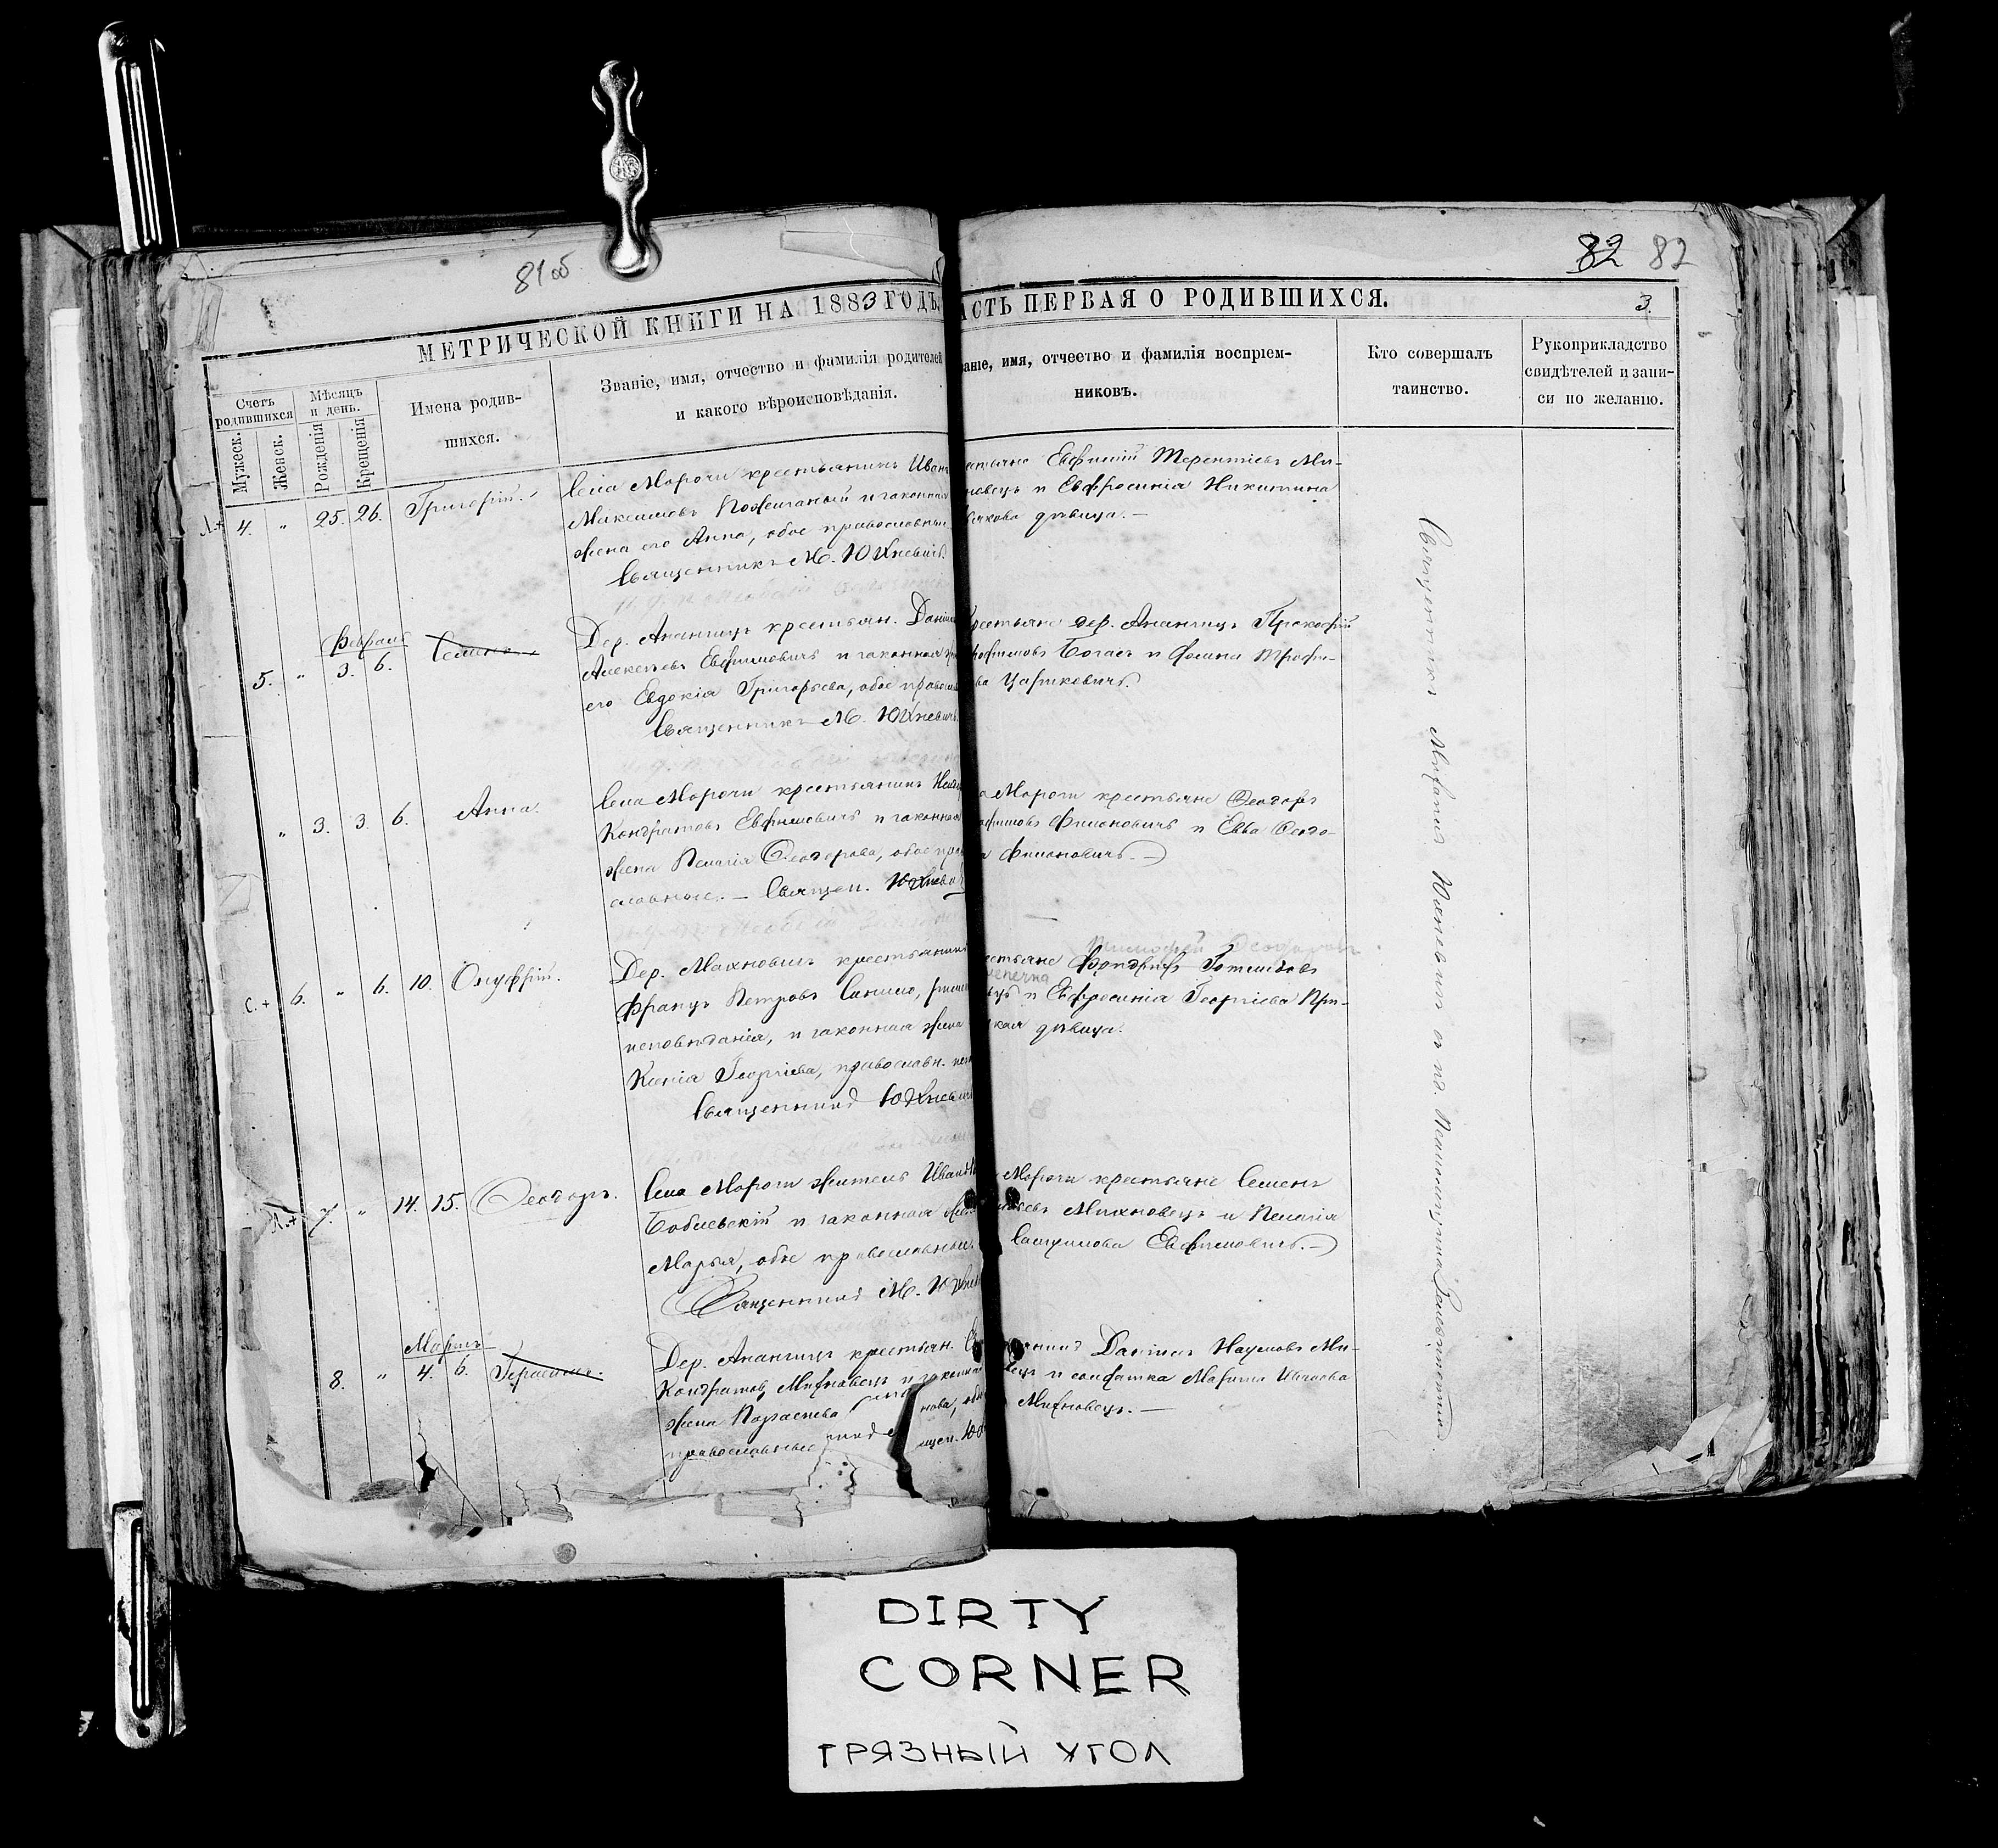 81об
82 82
МЕТРИЧЕСКОЙ КНИГИ НА 1883 ГОДЪ
АСТЬ ПЕРВАЯ О РОДИВШИХСЯ.
3.
Счетъ родившихся
Мужеск.
Женск.
Мѣсяцъ и день.
Рожденія
Крещенія
Имена родив-
шихся.
Званіе, имя, отчество и фамилія родителей
и какого вѣроисповѣданія.
аніе, имя, отчество и фамилія воспріем-
никовъ.
Кто совершалъ
таинство.
Рукоприкладство
свидѣтелей и запи-
си по желанію.
4. " 25. 26. Григорій.
Села Морочи крестьянинъ Иван
Максимовъ и законная
жена его Анна, обое православные
Священникъ М. Юхневичъ.
Евфимій Терентіевъ Ми-
новецъ и Евфросинія Никитина
дѣвица. —
Февраль
5. " 3. 6. Семенъ.
Дер. Ананчицъ крестьян. Даніил
Алексѣевъ Евфимовичъ и законная
его Евдокія Григорьева, обое правосл
Священникъ М. Юхневичъ.
рестьяне дер. Ананчицъ Прокофій
рофимовъ Богаег и Фомина Трофи-
ва Царикевичъ.
" 3. 3. 6. Анна.
Села Морочи крестьянинъ
Кондратовъ Евфимовичъ и законная
жена Пелагія Ѳеодорова, обое пра
славные. — Священ. Юхневи
а Морочи крестьяне Ѳеодоръ
Филоновичъ и Евва Ѳеодо-
а Филоновичъ. —
С. + 6. " 6. 10. Онуфрій.
Дер. Махновичъ крестьянинъ
Францъ Петровъ римс
исповѣданія, и законная жена
Ксенія Георгіева, православн. исп
Священникъ Юхневич
Тимофей Ѳеодоров
естьяне
и Евфросинія Георгіева При-
кая дѣвица.
Л. + 7. " 14. 15. Ѳеодоръ.
Села Морочи житель Иван
и законная жен
Марья, обое православные.
Священникъ М. Юхне
Морочи крестьяне Семенъ
Михновецъ и Пелагія
Евфимовичъ. —
Мартъ
8. " 4. 6. Герасимъ.
Дер. Ананчицъ крестьян.
Кондратов. Михновецъ и законная
жена Параскева нова, обо
православные щен. Юх
Даніилъ Наумовъ Ми-
ецъ и солдатка Марина
Михновецъ. —
Священникъ Юхневичъ съ
DIRTY
CORNER
ГРЯЗНЫЙ УГОЛ